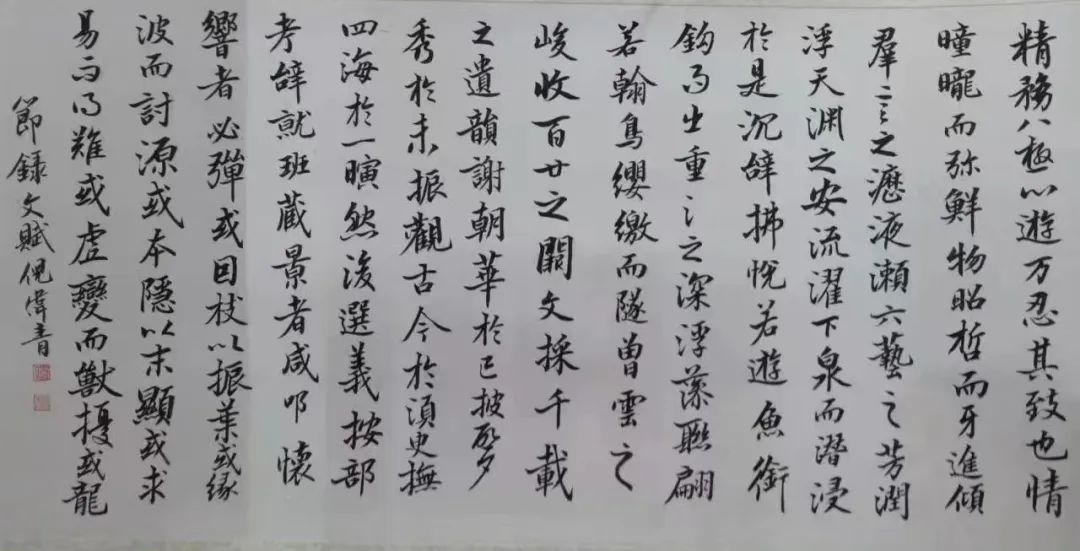 精務八極心遊万忍其致也情
曈曨而弥鮮物昭哲而牙進傾
羣言之瀝液瀬六藝之芳潤
浮天渊之安流濯下泉而潛浸
於是沉辭拂悅若遊魚銜
鈎而出重之深浮藻聯翩
若翰鳥纓繳而隧曾雲之
峻收百世之闕文採千載
之遺韻謝朝華於已披啓夕
秀於未振觀古今於須臾撫
四海於一瞋然後選義按部
考辭就班蔵景者咸叩懷
響者必彈或因枝以振葉或緣
波而討源或本隱以末顯或求
易而得難或虎變而獸擾或龍
節録文賦倪偉書